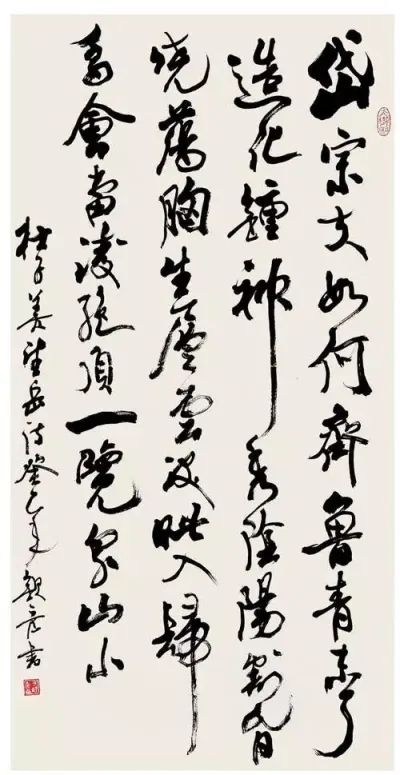 岱宗夫如何齊魯青未了
造化鍾神秀陰陽割昏
曉蕩胸生層雲決眦入歸
鳥會當凌絕頂一覽眾山小
杜子美望岳詩癸巳年書